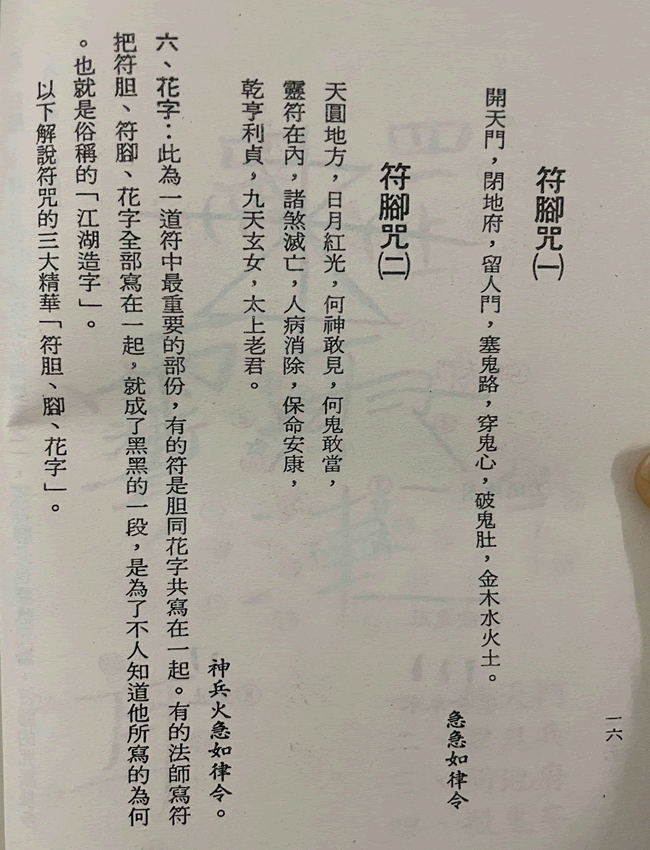 符腳咒㈠
開天門，閉地府，留人門，塞鬼路，穿鬼心，破鬼肚，金木水火土。
急急如律令
符腳咒㈡
天圓地方，日月紅光，何神敢見，何鬼敢當，
靈符在內，諸煞滅亡，人病消除，保命安康，
乾亨利貞，九天玄女，太上老君。
神兵火急如律令。
六、花字：此為一道符中最重要的部份，有的符是胆同花字共寫在一起。有的法師寫符
把符胆、符腳、花字全部寫在一起，就成了黑黑的一段，是為了不人知道他所寫的為何
。也就是俗稱的「江湖造字」。
以下解說符咒的三大精華「符胆、腳、花字」。
一六